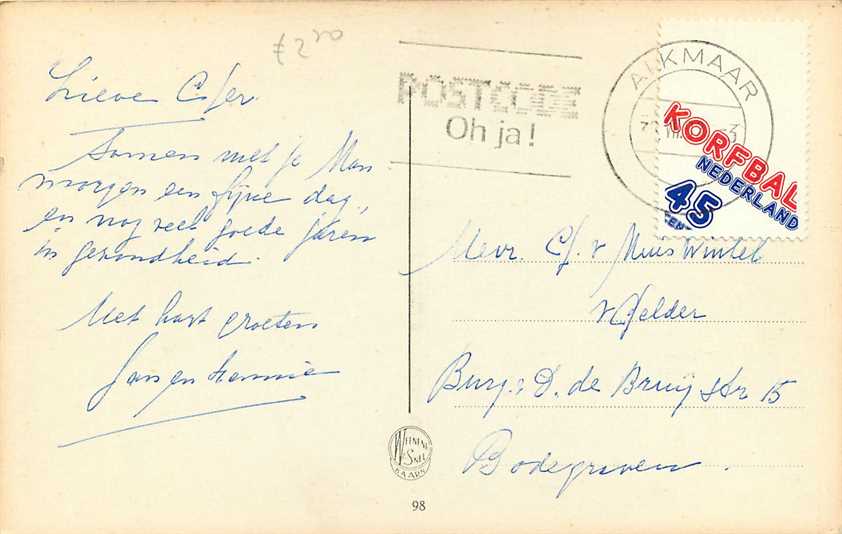 £ 2 20
Lieve
Samen met je Man
morgen een fijne dag,
en nog veel goede jaren
in gezondheid.
Met hart groeten
Jan en Hennie
POSTCODE
Oh ja!
ALKMAAR
KORFBAL
NEDERLAND
45
CENT
Mevr. v Muiswinkel
v Gelder
Burg. D. de Bruijstr 15
Bodegraven
WEENENK
& SNEL
BAARN
98